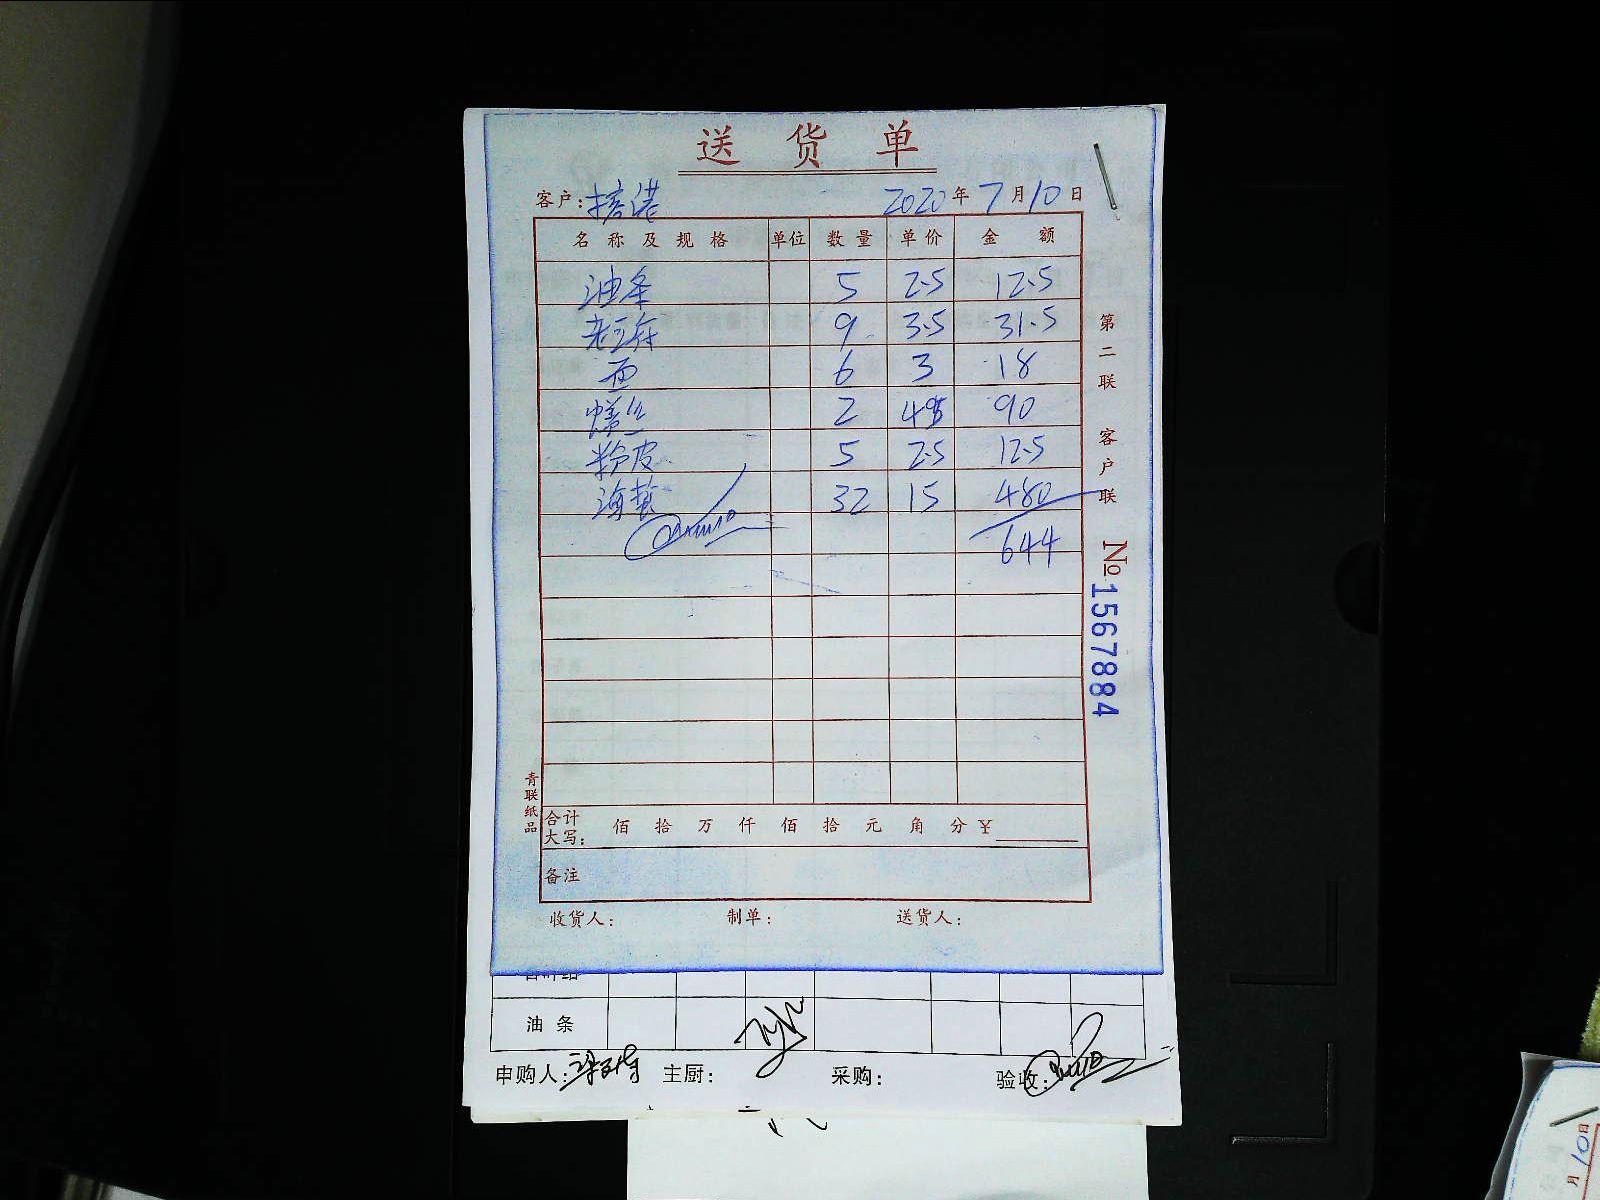 送货单
客户: 2020年7月10日
名称及规格 单位 数量 单价 金额
油条 5 2.5 12.5
老豆腐 9 3.5 31.5
面 6 3 18
2 45 90
粉皮 5 2.5 12.5
海蜇 32 15 480
644
第二联 客户联
№1567884
青联纸品
合计大写: 佰 拾 万 仟 佰 拾 元 角 分 ¥
备注
收货人: 制单: 送货人:
油条
申购人: 主厨: 采购: 验收:
月10日